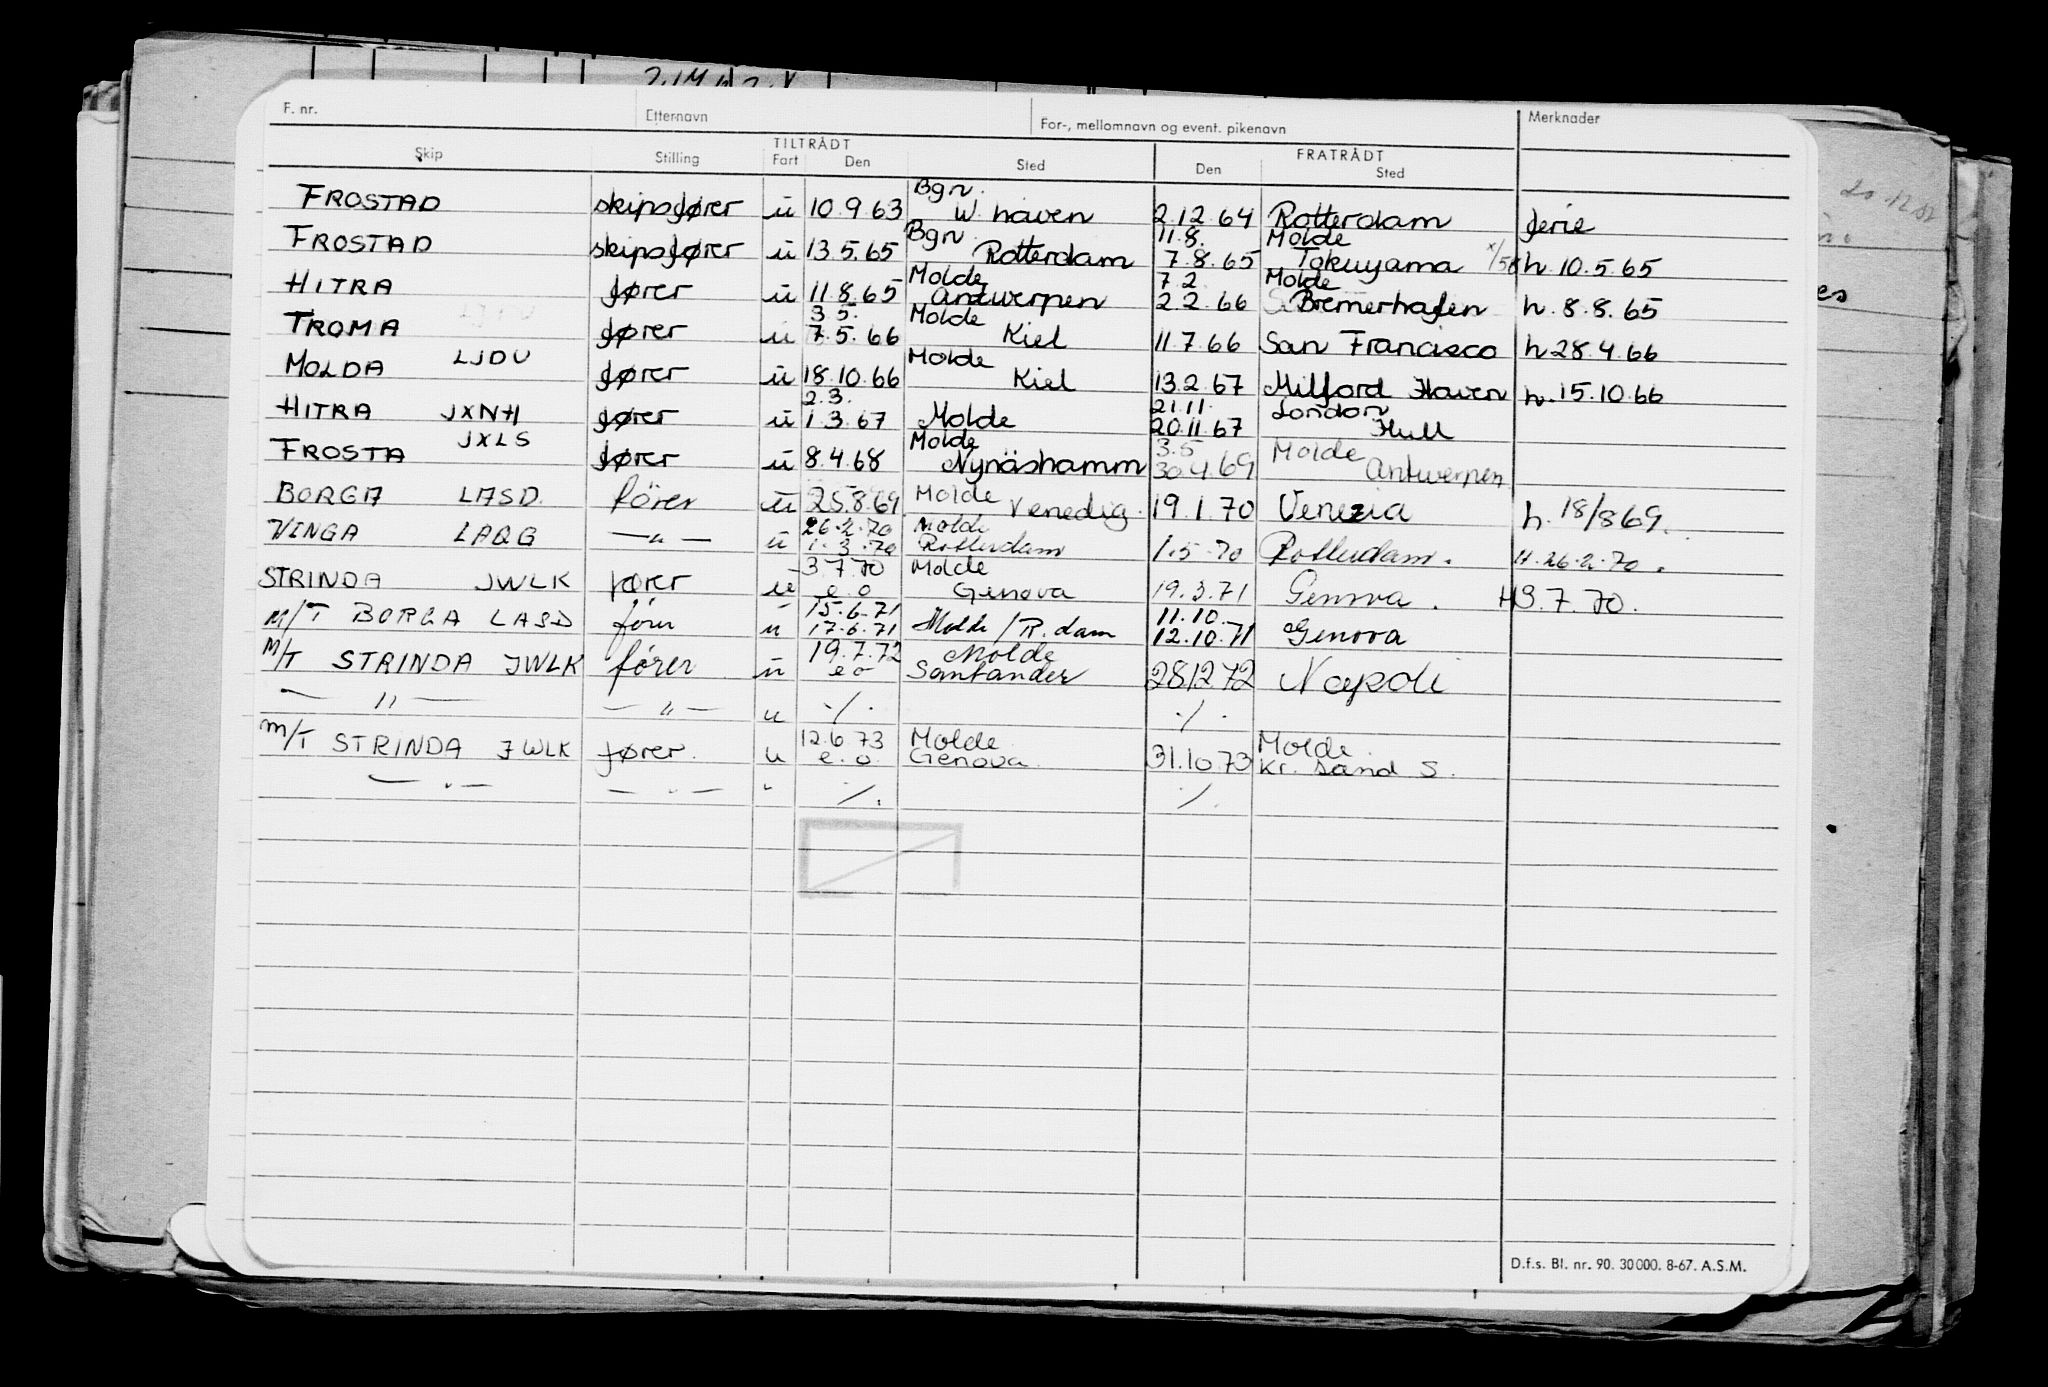 2.1462.V
F. nr. Etternavn For-, mellomnavn og event. pikenavn Merknader
TILTRÅDT FRATRÅDT
Skip Stilling Fart Den Sted Den Sted
FROSTAD skipsfører u 10.9.63 Bgn. W. haven 2.12.64 Rotterdam ferie
FROSTAD skipsfører u 13.5.65 Bgn. Rotterdam 11.8. 7.8.65 Molde Tokuyama h. 10.5.65
HITRA fører u 11.8.65 Molde Antwerpen 7.2. 2.2.66 Molde Bremerhafen h. 8.8.65
TROMA fører u 3.5. 7.5.66 Molde Kiel 11.7.66 San Francisco h 28.4.66
MOLDA LJDV fører u 18.10.66 Molde Kiel 13.2.67 Milford Haven h. 15.10.66
HITRA JXNH fører u 2.3. 1.3.67 Molde 21.11. 20.11.67 London Hull
FROSTA JXLS fører u 8.4.68 Molde Nynäshamm 3.5 30.4.69 Molde Antwerpen
BORGA LASD. fører u 25.8.69 Molde Venedig. 19.1.70 Venezia h. 18/8 69.
VINGA LAQG —"— u 26.2.70 1.3.70 Molde Rotterdam 1.5.70 Rotterdam. H. 26.2.70.
STRINDA JWLK fører u 3.7.70 e.o Molde Genova 19.3.71 Genova. H 3.7.70.
M/T BORGA LASD fører u 15.6.71 17.6.71 Molde / R.dam 11.10. 12.10.71 Genova
M/T STRINDA JWLK fører u 19.7.72 e o Molde Santander 28.12.72 Napoli
—"— —"— u ./. ./.
M/T STRINDA JWLK fører. u 12.6.73 e.o. Molde Genova 31.10.73 Molde Kr. sand S.
—"— —"— " ./. ./.
D.f.s. Bl. nr. 90. 30 000. 8-67. A.S.M.